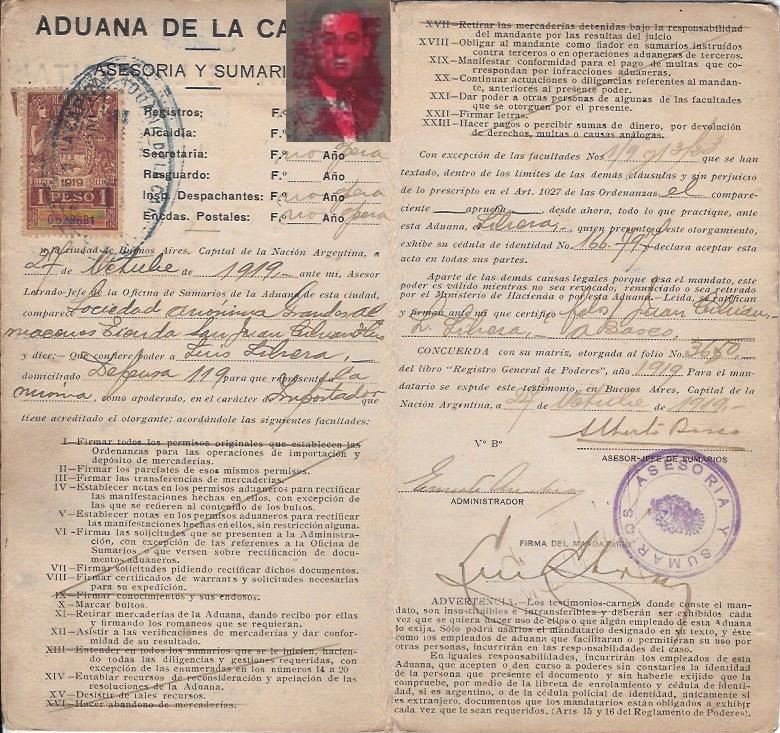 ADUANA DE LA CA
ASESORIA Y SUMARI
Registros: F.º
Alcaidía: F.º
Secretaría: F.º Año
Resguardo: F.º Año
Insp. Despachantes: F.º Año
Encdas. Postales: F.º Año
1919
1 PESO 1
ciudad de Buenos Aires, Capital de la Nación Argentina, a
27 de Octubre de 1919, ante mi, Asesor
Letrado-Jefe de la Oficina de Sumarios de la Aduana de esta ciudad,
comparece Sociedad anonima Grandes al
macenes Tienda San Juan
y dice:— Que confiere poder a Luis Librera,
domiciliado Defensa 119 para que represente a la
misma, como apoderado, en el carácter de Importador que
tiene acreditado el otorgante; acordándole las siguientes facultades:
I—Firmar todos los permisos originales que establecen las
Ordenanzas para las operaciones de importación y
depósito de mercaderías.
II—Firmar los parciales de esos mismos permisos.
III—Firmar las transferencias de mercaderías.
IV—Establecer notas en los permisos aduaneros para rectificar
las manifestaciones hechas en ellos, con excepción de
las que se refieren al contenido de los bultos.
V—Establecer notas en los permisos aduaneros para rectificar
las manifestaciones hechas en ellos, sin restricción alguna.
VI—Firmar las solicitudes que se presenten a la Administra-
ción, con excepción de las referentes a la Oficina de
Sumarios o que versen sobre rectificación de docu-
mentos aduaneros.
VII—Firmar solicitudes pidiendo rectificar dichos documentos.
VIII—Firmar certificados de warrants y solicitudes necesarias
para su expedición.
IX—Firmar conocimientos y sus endosos.
X—Marcar bultos.
XI—Retirar mercaderías de la Aduana, dando recibo por ellas
y firmando los romaneos que se requieran.
XII—Asistir a las verificaciones de mercaderías y dar confor-
midad de su resultado.
XIII—Entender en todos los sumarios que se le inicien, hacien-
do todas las diligencias y gestiones requeridas, con
excepción de las enumeradas en los números 14 a 20
XIV—Entablar recursos de reconsideración y apelación de las
resoluciones de la Aduana.
XV—Desistir de tales recursos.
XVI—Hacer abandono de mercaderías.
XVII—Retirar las mercaderías detenidas bajo la responsabilidad
del mandante por las resultas del juicio
XVIII—Obligar al mandante como fiador en sumarios instruídos
contra terceros o en operaciones aduaneras de terceros.
XIX—Manifestar conformidad para el pago de multas que co-
rrespondan por infracciones aduaneras.
XX—Continuar actuaciones o diligencias referentes al mandan-
te, anteriores al presente poder.
XXI—Dar poder a otras personas de algunas de las facultades
que se otorguen por el presente.
XXII—Firmar letras.
XXIII—Hacer pagos o percibir sumas de dinero, por devolución
de derechos, multas o causas análogas.
Con excepción de las facultades Nos. que se han
textado, dentro de los límites de las demás cláusulas y sin perjuicio
de lo prescripto en el Art. 1027 de las Ordenanzas el compare-
ciente aprueba desde ahora, todo lo que practique, ante
esta Aduana, Librera, quien presente a este otorgamiento,
exhibe su cédula de identidad No declara aceptar esta
acta en todas sus partes.
Aparte de las demás causas legales porque cesa el mandato, este
poder es válido mientras no sea revocado, renunciado o sea retirado
por el Ministerio de Hacienda o por esta Aduana.—Leida, se ratifican
y firman ante mi que certifico
L. Librera, A Basco,
CONCUERDA con su matriz, otorgada al folio No
del libro "Registro General de Poderes", año 1919. Para el man-
datario se expide este testimonio, en Buenos Aires, Capital de la
Nación Argentina, a 27 de Octubre de 1919.-
Alberto Basco
Vº Bº
ASESOR-JEFE DE SUMARIOS
ADMINISTRADOR
ASESORIA Y SUMARIOS
FIRMA DEL MANDATARIO
ADVERTENCIA.—Los testimonios-carnets donde conste el man-
dato, son insustituibles e intransferibles y deberán ser exhibidos cada
vez que se quiera hacer uso de ellos o que algún empleado de esta Aduana
lo exija. Sólo podrá usarlos el mandatario designado en el texto, y éste
como los empleados de aduana que facilitaran o permitieran su uso por
otras personas, incurrirán en las responsabilidades del caso.
En iguales responsabilidades, incurrirán los empleados de esta
Aduana, que acepten o den curso a poderes sin constarles la identidad
de la persona que presente el documento y sin haberle exijido que la
compruebe, por medio de la libreta de enrolamiento y cédula de identi-
dad, si es argentino, o de la cédula policial de identidad, únicamente si
es extranjero, documentos que los mandatarios están obligados a exhibir
cada vez que le sean requeridos. (Arts 15 y 16 del Reglamento de Poderes).